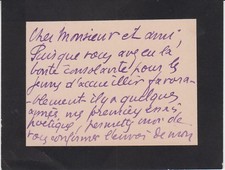 Cher Monsieur et ami
Puisque vous avez eu la
bonté consolante pour les
jeunes d'accueillir favora-
blement il y a quelques
années mes premiers essais
poétiques, permettez moi de
vous confirmer l'envoi de mon